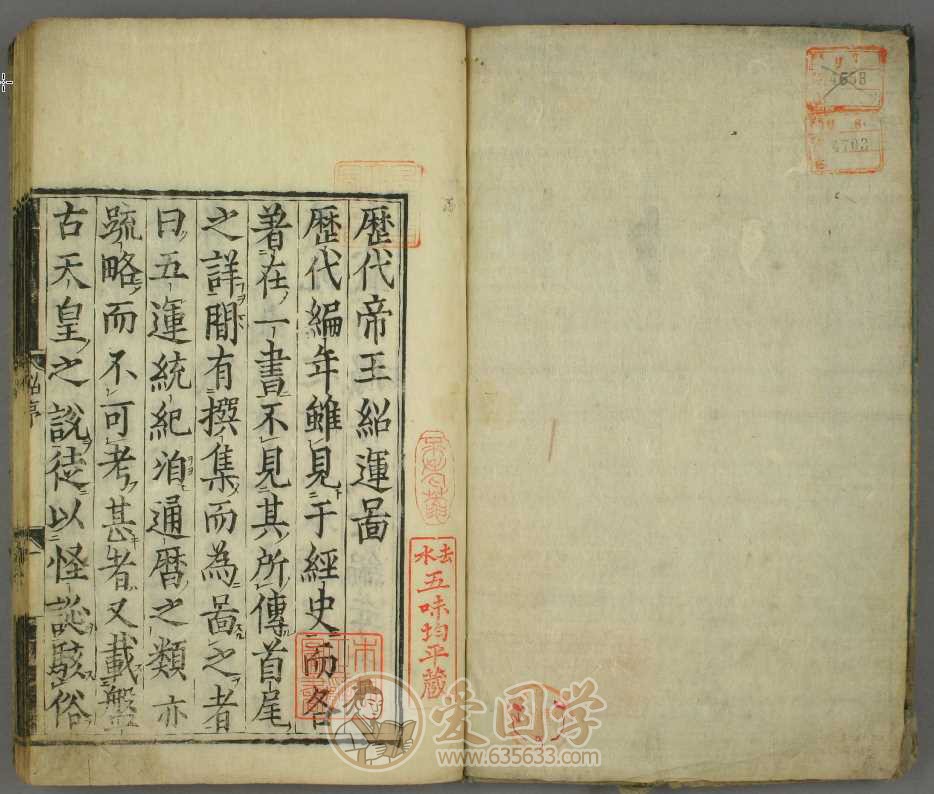 歷代帝王紹運啚
歷代編年雖見于經史而各
著在一書不見其所傳首尾
之詳間有撰集而為啚之者
曰五運統紀洎通曆之類亦
疏略而不可考甚者又載盤
古天皇之說徒以怪誕駭俗
紹序
去水五味均平藏
4658
4703
爱国学
www.635633.com